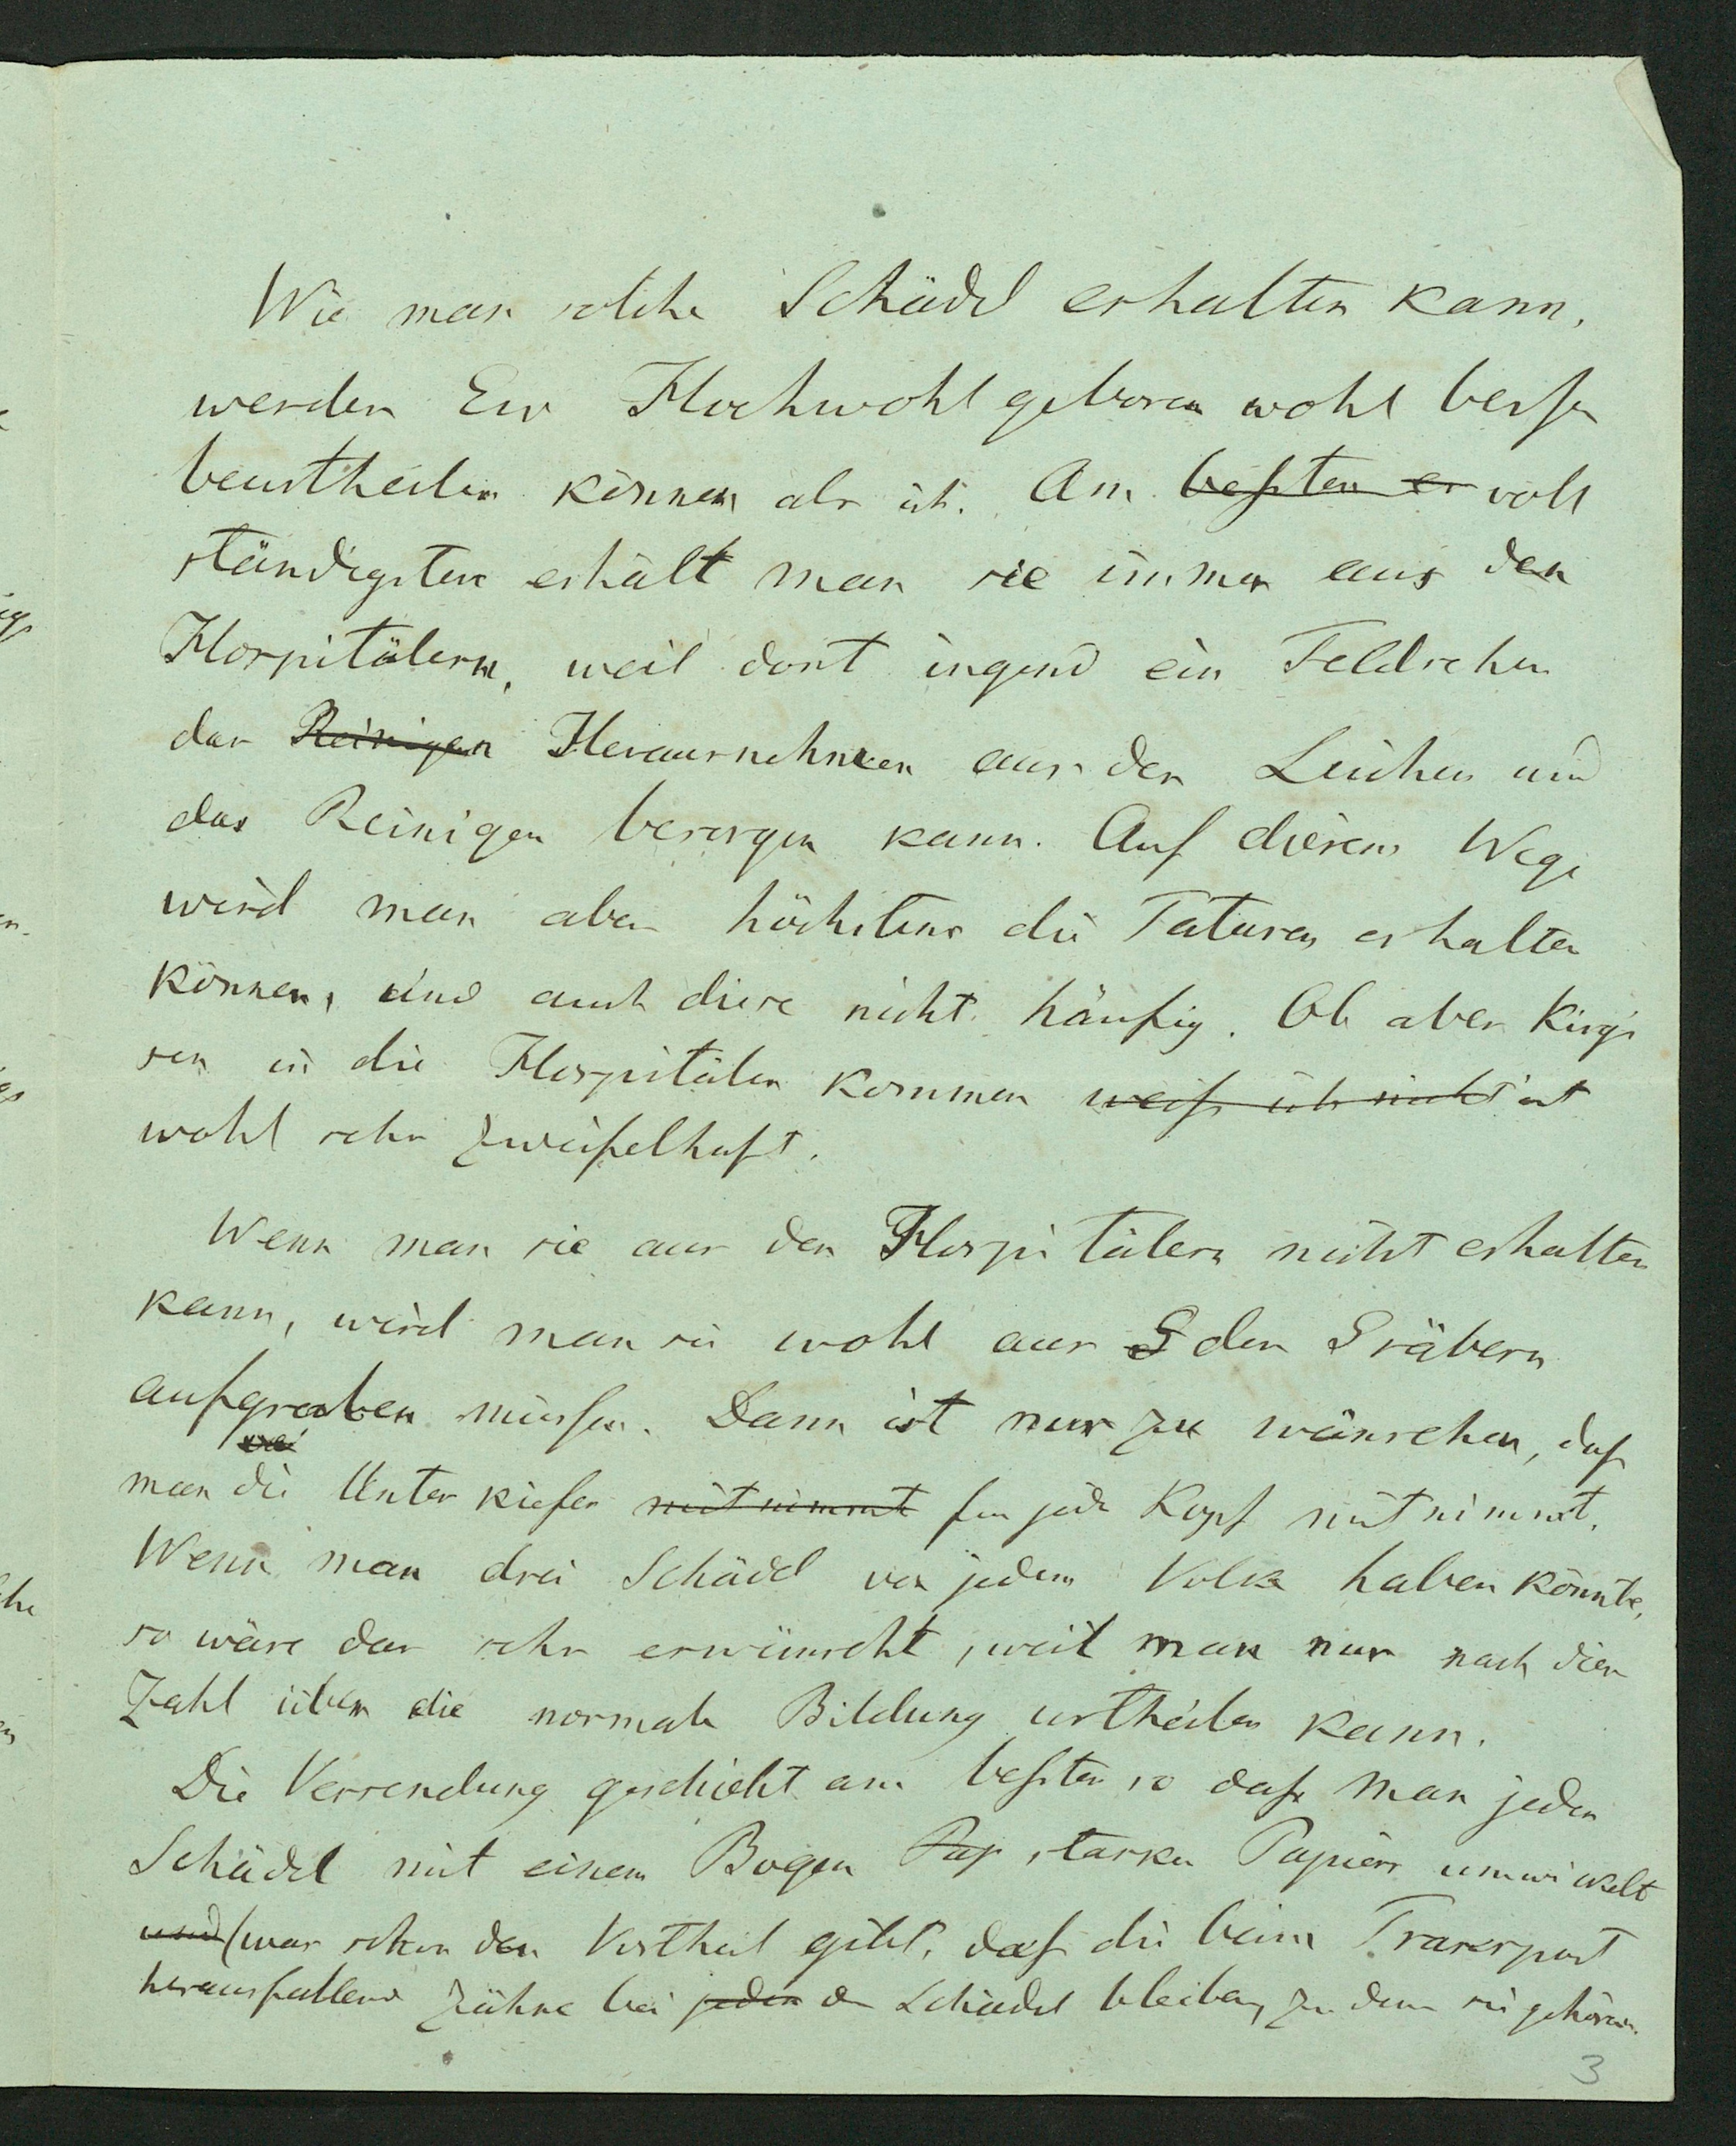 Wie man solche Schädel erhalten kann,
werden Ew Hochwohlgeboren wohl besser
beurtheilen können als ich. Am besten er voll
ständigsten erhält man sie immer aus den
Hospitälern, weil dort irgend ein Feldscher
das Reinigen Herausnehmen aus den Leichen und
das Reinigen besorgen kann. Auf diesem Wege
wird man aber höchstens die Tataren erhalten
können, und auch diese nicht häufig. Ob aber Kirgi
sen in die Hospitäler kommen weiß ich nicht ist
wohl sehr zweifelhaft.
Wenn man sie aus den Hospitälern nicht erhalten
kann, wird man sie wohl aus G den Gräbern
aufgraben müssen. Dann ist nur zu wünschen, daß
man die Unterkiefer mitnimmt für jede Kopf mitnimmt.
Wenn man drei Schädel von jedem Volke haben könnte,
so wäre das sehr erwünscht, weil man nur nach dieser
Zahl über die normale Bildung urtheilen kann.
Die Versendung geschieht am besten so daß man jeden
Schädel mit einem Bogen Pap starken Papiers umwickelt
und (was schon den Vortheil gibt, daß die beim Transport
herausfallend Zähne bei jeden dem Schädel bleiben, zu dem sie gehören.
3